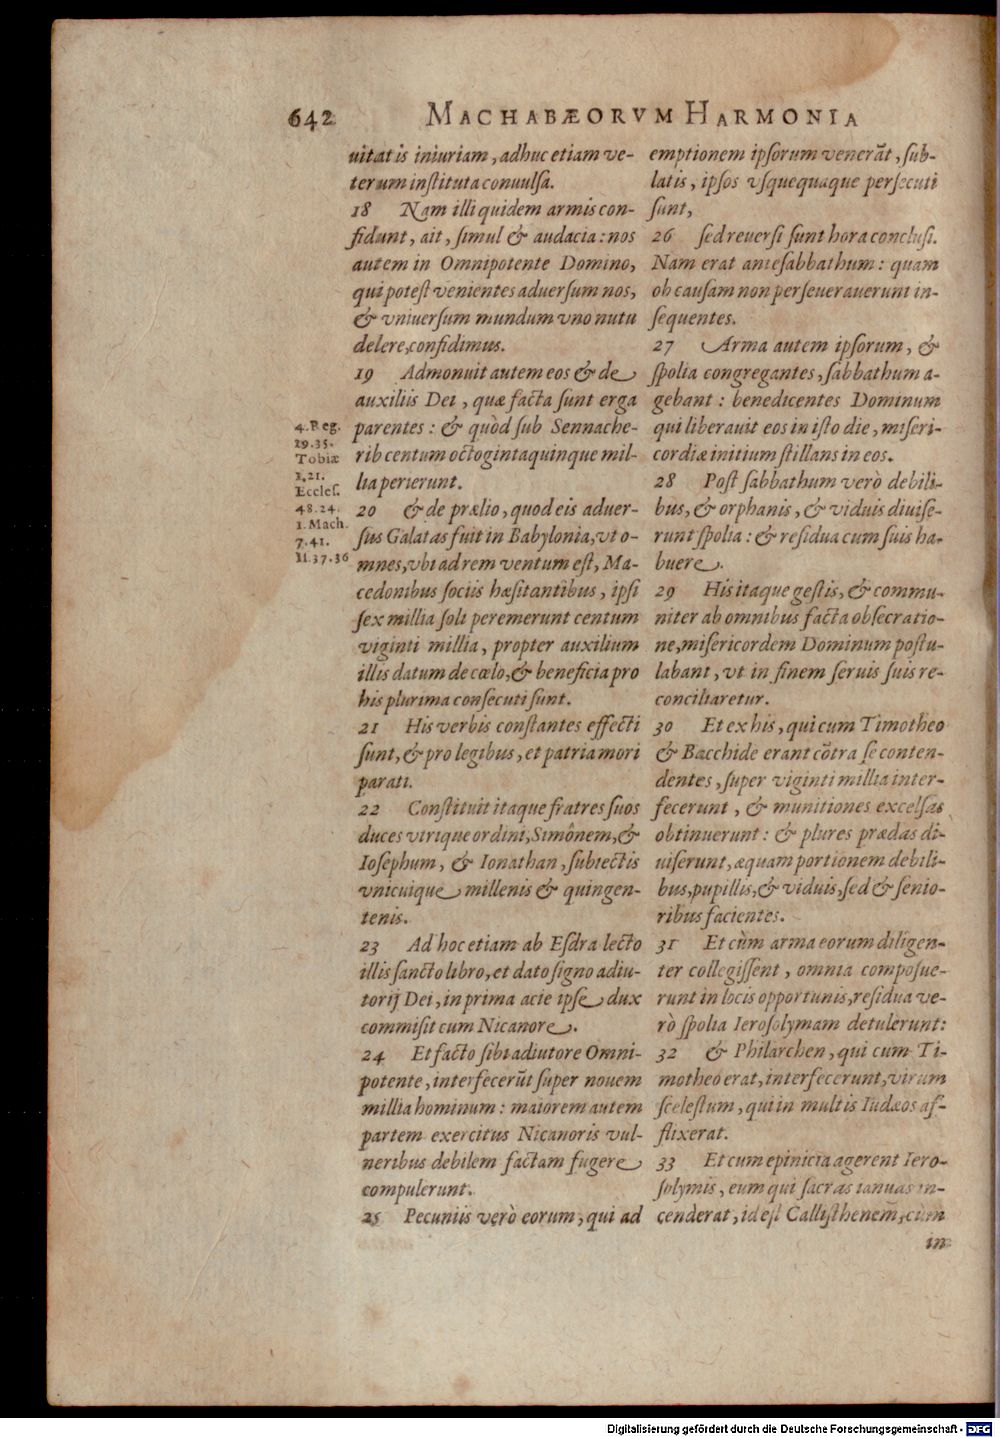 642 MACHABÆORVM HARMONIA
uitatis iniuriam, adhuc etiam ve-
terum instituta conuulsa.
18 Nam illi quidem armis con-
fidunt, ait, simul & audacia: nos
autem in Omnipotente Domino,
qui potest venientes aduersum nos,
& vniuersum mundum vno nutu
delere, confidimus.
19 Admonuit autem eos & de
auxiliis Dei, quæ facta sunt erga
parentes: & quòd sub Sennache-
rib centum octogintaquinque mil-
lia perierunt.
20 & de prælio, quod eis aduer-
sus Galatas fuit in Babylonia, vt o-
mnes, vbi ad rem ventum est, Ma-
cedonibus sociis hæsitantibus, ipsi
sex millia soli peremerunt centum
viginti millia, propter auxilium
illis datum de cœlo, & beneficia pro
his plurima consecuti sunt.
21 His verbis constantes effecti
sunt, & pro legibus, et patria mori
parati.
22 Constituit itaque fratres suos
duces vtrique ordini, Simônem, &
Iosephum, & Ionathan, subiectis
vnicuique millenis & quingen-
tenis.
23 Ad hoc etiam ab Esdra lecto
illis sancto libro, et dato signo adiu-
torij Dei, in prima acie ipse dux
commisit cum Nicanore.
24 Et facto sibi adiutore Omni-
potente, interfecerūt super nouem
millia hominum: maiorem autem
partem exercitus Nicanoris vul-
neribus debilem factam fugere
compulerunt.
25 Pecuniis verò eorum, qui ad
4. Reg.
29.35.
Tobiæ
1.21.
Eccles.
48.24.
1. Mach.
7.41.
II.37.36
emptionem ipsorum venerāt, sub-
latis, ipsos vsquequaque persecuti
sunt,
26 sed reuersi sunt hora conclusi.
Nam erat ante sabbathum: quam
ob causam non perseuerauerunt in-
sequentes.
27 Arma autem ipsorum, &
spolia congregantes, sabbathum a-
gebant: benedicentes Dominum
qui liberauit eos in isto die, miseri-
cordiæ initium stillans in eos.
28 Post sabbathum verò debili-
bus, & orphanis, & viduis diuise-
runt spolia: & residua cum suis ha-
buere.
29 His itaque gestis, & commu-
niter ab omnibus facta obsecratio-
ne, misericordem Dominum postu-
labant, vt in finem seruis suis re-
conciliaretur.
30 Et ex his, qui cum Timotheo
& Bacchide erant cōtra se conten-
dentes, super viginti millia inter-
fecerunt, & munitiones excelsas
obtinuerunt: & plures prædas di-
uiserunt, æquam portionem debili-
bus, pupillis, & viduis, sed & senio-
ribus facientes.
31 Et cùm arma eorum diligen-
ter collegissent, omnia composue-
runt in locis opportunis, residua ve-
rò spolia Ierosolymam detulerunt:
32 & Philarchen, qui cum Ti-
motheo erat, interfecerunt, virum
scelestum, qui in multis Iudæos af-
flixerat.
33 Et cum epinicia agerent Iero-
solymis, eum qui sacras ianuas in-
cenderat, id est Callisthenem, cùm
in
Digitalisierung gefördert durch die Deutsche Forschungsgemeinschaft - DFG